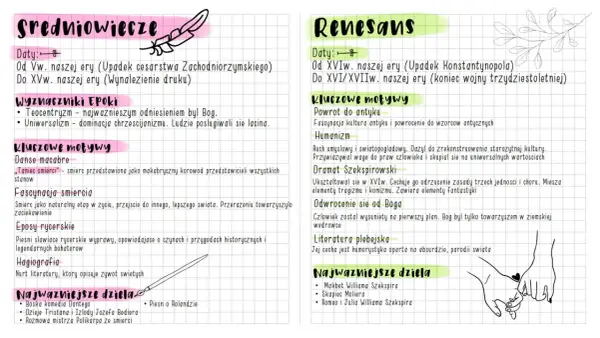 Średniowiecze
Daty:
Od Vw. naszej ery (Upadek cesarstwa Zachodniorzymskiego)
Do XVw. naszej ery (Wynalezienie druku)
Wyznaczniki Epoki
• Teocentryzm - najwazniejszym odniesieniem byl Bog.
• Uniwersalizm - dominacja chrzescijanizmu. Ludzie poslugiwali sie lacina.
Kluczowe motywy
Danse macabre
„Taniec smierci" - smierc przedstawiona jako makabryczny korowod przedstawicieli wszystkich
stanow
Fascynacja smiercia
Smierc jako naturalny etap w zyciu, przejscie do innego, lepszego swiata. Przerazenie towarzyszylo
zaciekawienie
Eposy rycerskie
Piesni slawiace rycerskie wyprawy, opowiadajace o czynach i przygodach historycznych i
legendarnych bohaterow
Hagiografia
Nurt literatury, ktory opisuje zywot swietych
Najwazniejsze dziela
• Boska komedia Dantego
• Dzieje Tristana i Izoldy Josefa Bediera
• Rozmowa mistrza Polikarpa ze smierci
• Piesn o Rolandzie
Renesans
Daty:
Od XVIw. naszej ery (Upadek Konstantynopola)
Do XVI/XVIIw. naszej ery (koniec wojny trzydziestoletniej)
Kluczowe motywy
Powrot do antyku
Fascynacja kultura antyku i powrocenie do wzorcow antycznych
Humanizm
Ruch umyslowy i swiatopogladowy. Dazyl do zrekonstruowania starozytnej kultury.
Przywiazywal wage do praw czlowieka i skupial sie na uniwersalnych wartosciach
Dramat Szekspirowski
Uksztaltowal sie w XVIw. Cechuje go odrzucenie zasady trzech jednosci i choru. Miesza
elementy tragizmu i komizmu. Zawiera elementy fantastyki
Odwrocenie sie od Boga
Czlowiek zostal wysuniety na pierwszy plan. Bog byl tylko towarzyszem w ziemskiej
wedrowce
Literatura plebejska
Jej cecha jest humorystyka oparta na absurdzie, parodii swiata
Najwazniejsze dziela
• Makbet Williama Szekspira
• Skapiec Moliera
• Romeo i Julia Williama Szekspira